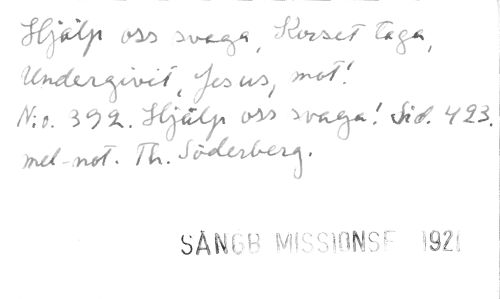 Hjälp oss svaga, Korset taga,
Undergivit, Jesus, mot!
N:o. 392. Hjälp oss svaga! Sid. 423.
mel-not. Th. Söderberg.
SÅNGB MISSIONSF 1921